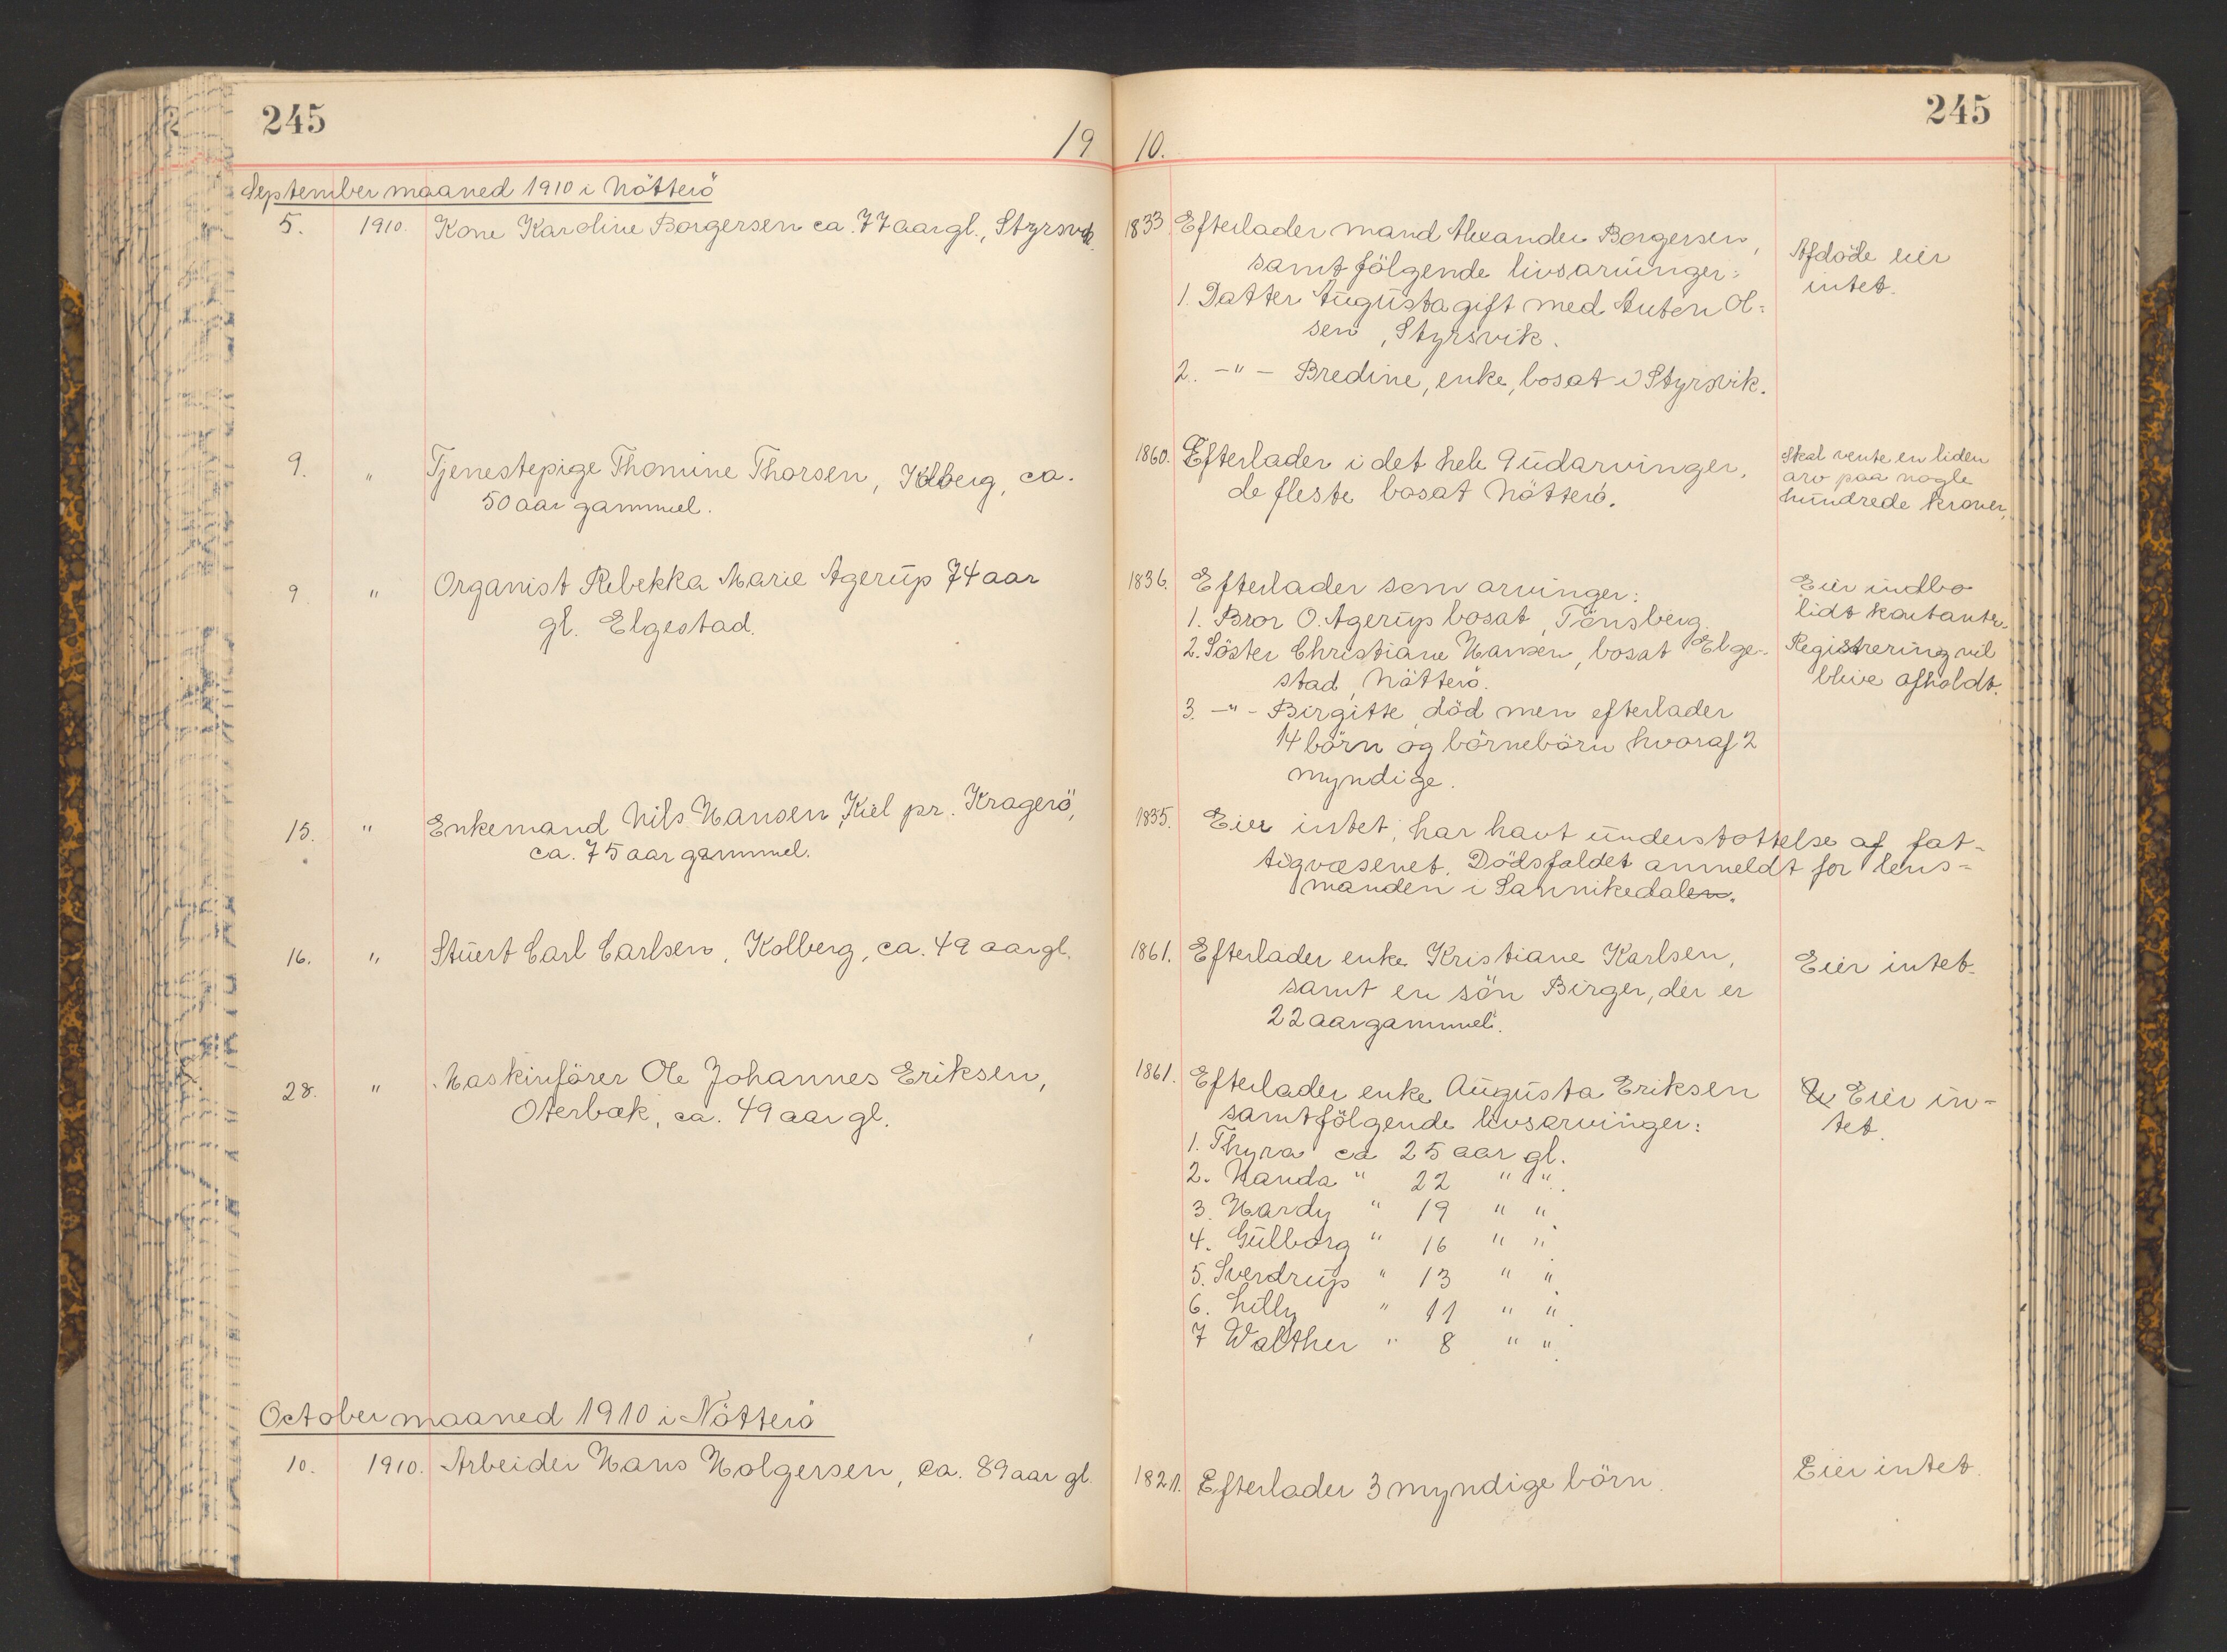 245
245
19 10.
September maaned 1910 i Nötterö
5. 1910. Kone Karoline Borgersen ca. 77 aar gl., Styrsvik.
1833 Efterlader mand Alexander Borgersen,
samt fölgende livsarvinger:
1. Datter Augusta gift med Anton Ol-
sen, Styrsvik.
2. -"- Bredine, enke, bosat i Styrsvik.
Afdöde eier
intet.
9. " Tjenestepige Thomine Thorsen, Kolberg, ca.
50 aar gammel.
1860. Efterlader i det hele 9 udarvinger,
de fleste bosat Nötterö.
Skal vente en liden
arv paa nogle
hundrede kroner.
9 " Organist Rebekka Marie Agerup 74 aar
gl. Elgestad.
1836. Efterlader som arvinger:
1. Bror O. Agerup bosat, Tönsberg.
2. Söster Christiane Hansen, bosat Elge-
stad, Nötterö.
3. -"- Birgitte, död men efterlader
14 börn og börnebörn hvoraf 2
myndige.
Eier indbo
lidt kontanter.
Registrering vil
blive afholdt.
15. " Enkemand Nils Hansen, Kiel pr. Kragerö,
ca. 75 aar gammel.
1835. Eier intet, har havt understottelse af fat-
tigvæsenet. Dödsfaldet anmeldt for lens-
manden i Sannikedalen.
16. " Stuert Carl Carlsen, Kolberg, ca. 49 aar gl.
1861. Efterlader enke Kristiane Karlsen,
samt en sön Birger, der er
22 aar gammel.
Eier intet.
28. " Maskinförer Ole Johannes Eriksen,
Oterbæk, ca. 49 aar gl.
1861. Efterlader enke Augusta Eriksen
samt fölgende livsarvinger:
1. Thyra ca 25 aar gl.
2. Nanda " 22 " ".
3. Hardy " 19 " "
4. Gulborg " 16 " ".
5. Sverdrup " 13 " "
6. Lilly " 11 " ".
7 Walther " 8 " ".
Eier in-
tet.
October maaned 1910 i Nötterö
10. 1910. Arbeider Hans Holgersen, ca. 89 aar gl.
1821. Efterlader 3 myndige börn.
Eier intet.